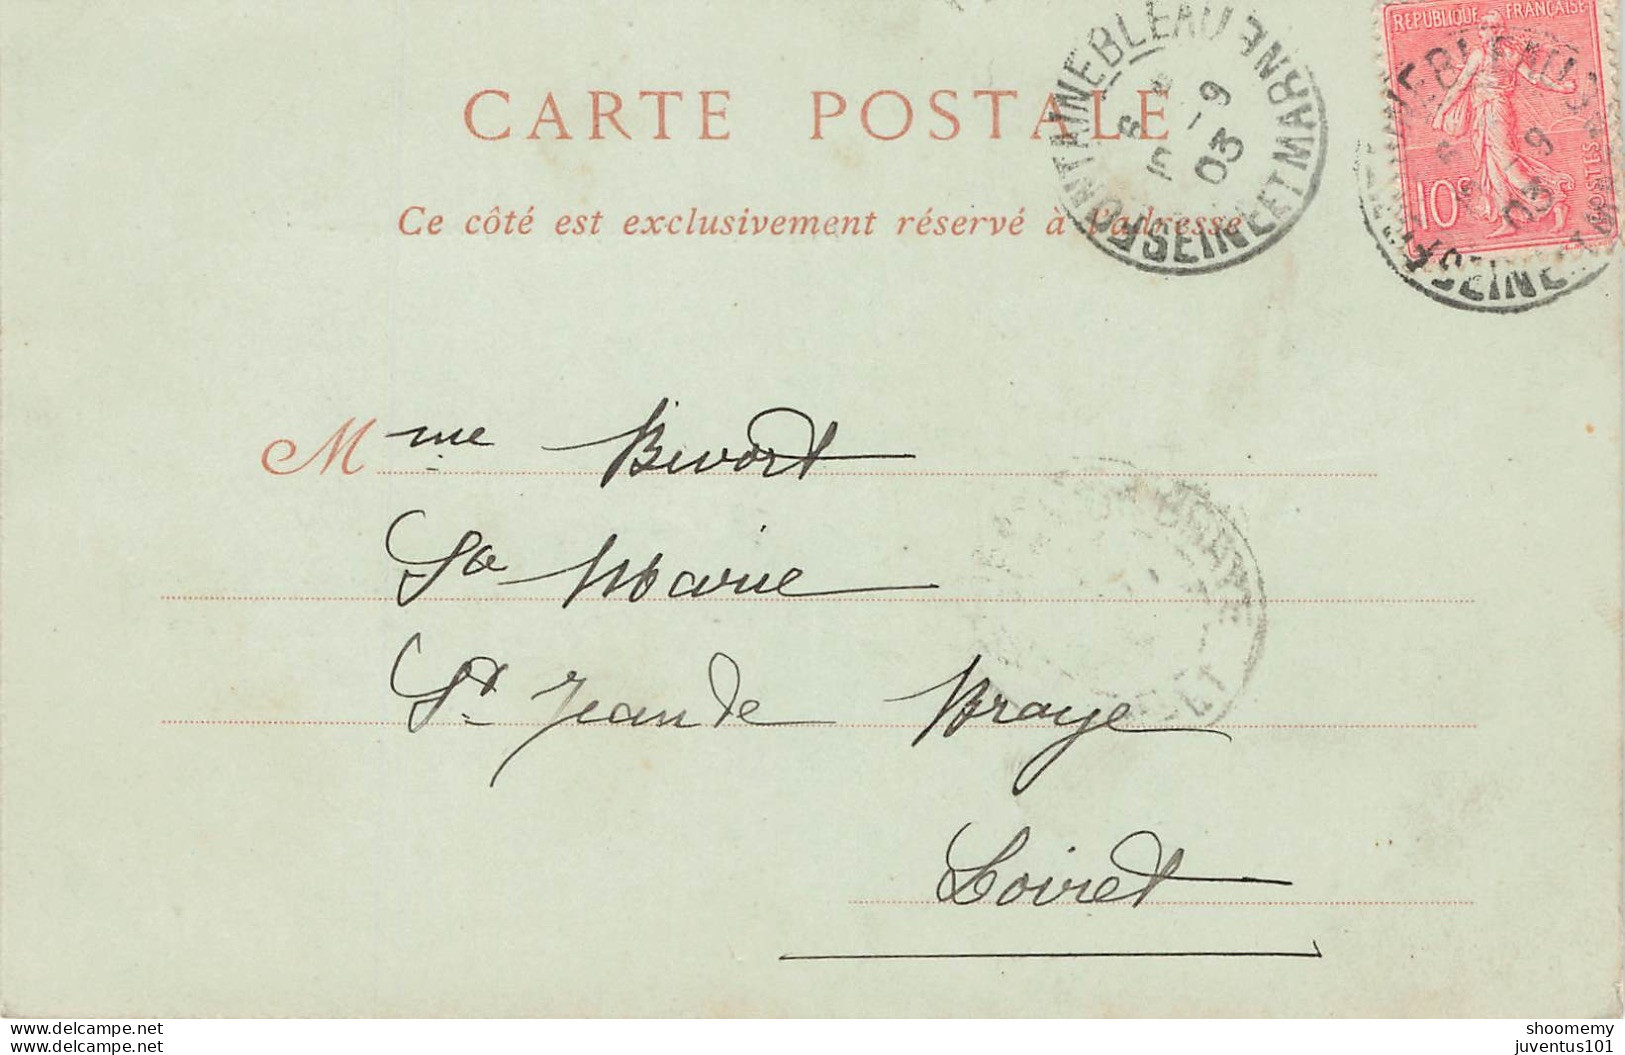 CARTE POSTALE
Ce côté est exclusivement réservé à l'adresse
FONTAINEBLEAU SEINE ET MARNE
6 9
03
REPUBLIQUE FRANÇAISE
10
Mme Bivort
Ste Marie
St Jean de Braye
Loiret
visit my ebay store
juventus101
shoomemy
juventus101